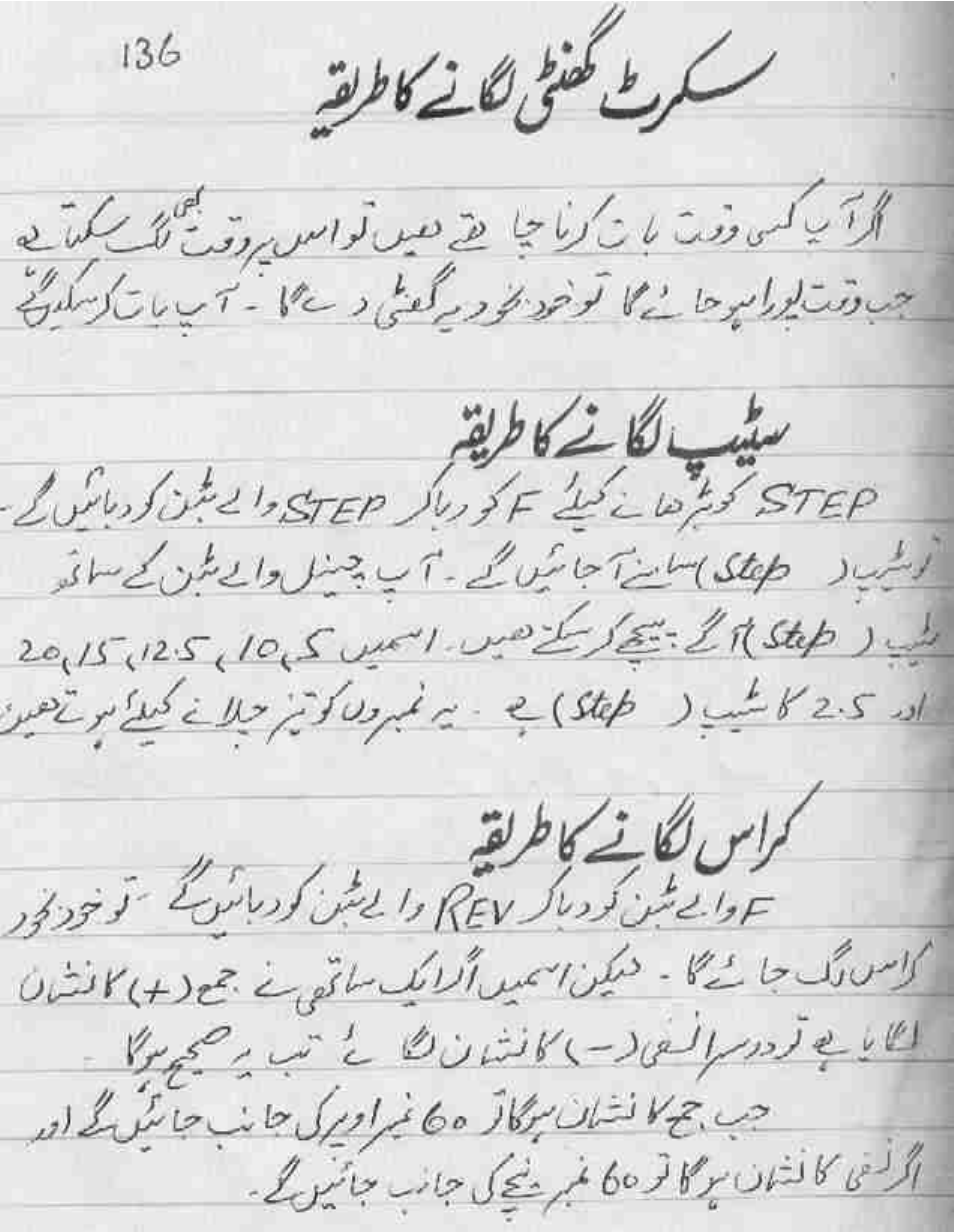 136
سکرٹ گھنٹی لگانے کا طریقہ
اگر آپ کسی وقت بات کرنا چاہتے ھیں تو اس پر وقت بھی لگ سکتا ہے
جب وقت پورا ہو جائے گا تو خود بخود یہ گھنٹی دے گا ۔ آپ بات کر سکیں گے
سٹیپ لگانے کا طریقہ
STEP کو بڑھانے کیلئے F کو دبا کر STEP والے بٹن کو دبائیں گے ۔
تو سٹیپ (Step) سامنے آ جائیں گے ۔ آپ چینل والے بٹن کے ساتھ
سٹیپ (Step) آگے پیچھے کر سکتے ھیں ۔ اسمیں 5، 10، 12.5، 15، 20
اور 2.5 کا سٹیپ (Step) ہے ۔ یہ نمبروں کو تیز چلانے کیلئے ہوتے ھیں
کراس لگانے کا طریقہ
F والے بٹن کو دبا کر REV والے بٹن کو دبائیں گے ۔ تو خود بخود
کراس لگ جائے گا ۔ لیکن اسمیں اگر ایک ساتھی نے جمع (+) کا نشان
لگایا ہے تو دوسرا نفی (-) کا نشان لگائے تب یہ صحیح ہوگا ۔
جب جمع کا نشان ہوگا تو 60 نمبر اوپر کی جانب جائیں گے اور
اگر نفی کا نشان ہو گا تو 60 نمبر نیچے کی جانب جائیں گے ۔